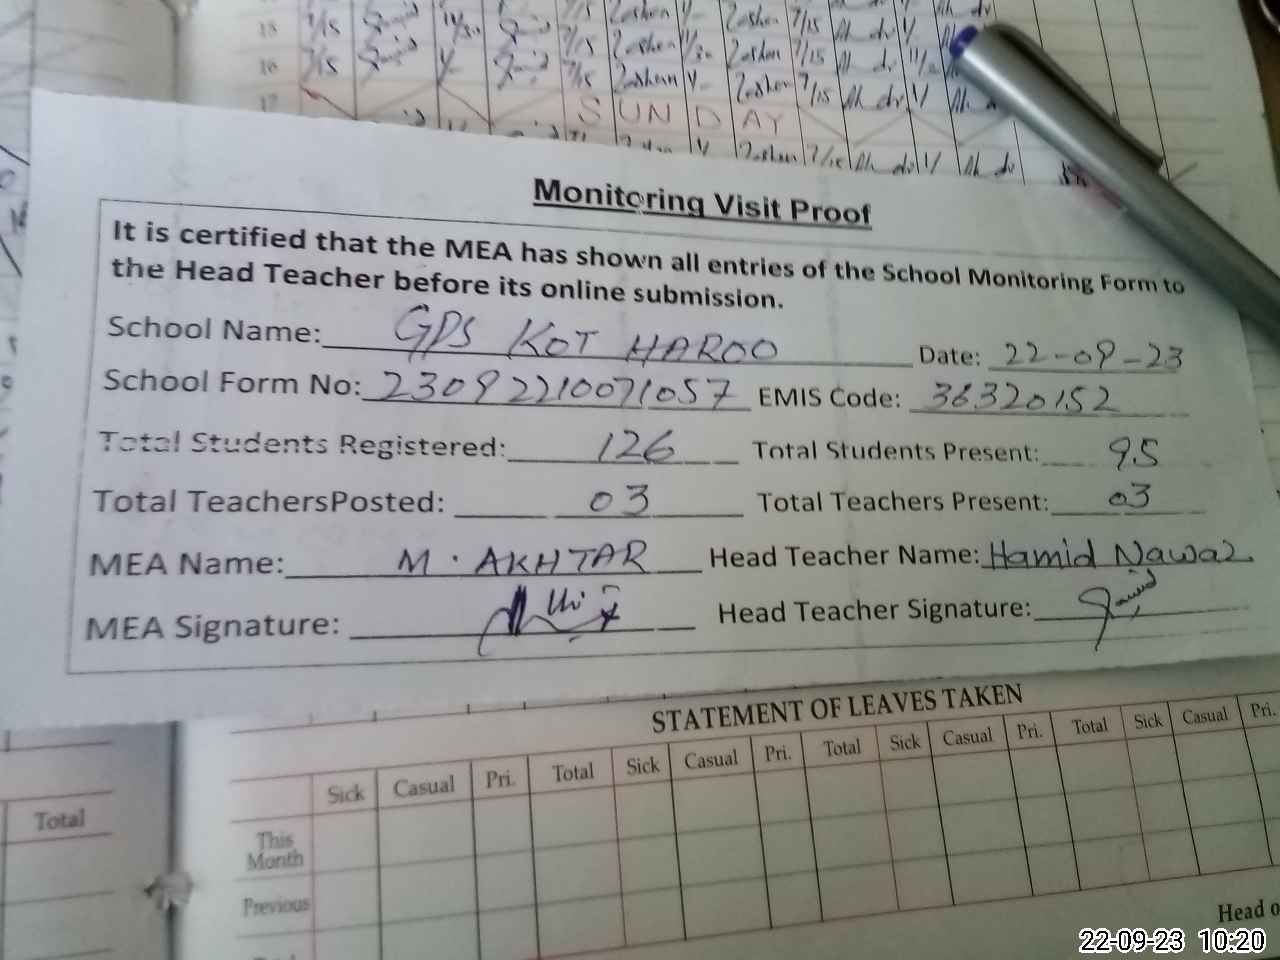 15 7/15 11/30 7/15 Zeshan 1/- Zeshan 7/15
16 7/15 1/- 7/15 Zeshan 1/- Zeshan 7/15
17 SUNDAY
Monitoring Visit Proof
It is certified that the MEA has shown all entries of the School Monitoring Form to
the Head Teacher before its online submission.
School Name: GPS KOT HAROO Date: 22-09-23
School Form No: 23092210071057 EMIS Code: 36320152
Total Students Registered: 126 Total Students Present: 95
Total TeachersPosted: 03 Total Teachers Present: 03
MEA Name: M. AKHTAR Head Teacher Name: Hamid Nawaz
MEA Signature: Head Teacher Signature:
STATEMENT OF LEAVES TAKEN
Total Sick Casual Pri. Total Sick Casual Pri. Total Sick Casual Pri. Total Sick Casual Pri.
This
Month
Previous
Head o
22-09-23 10:20